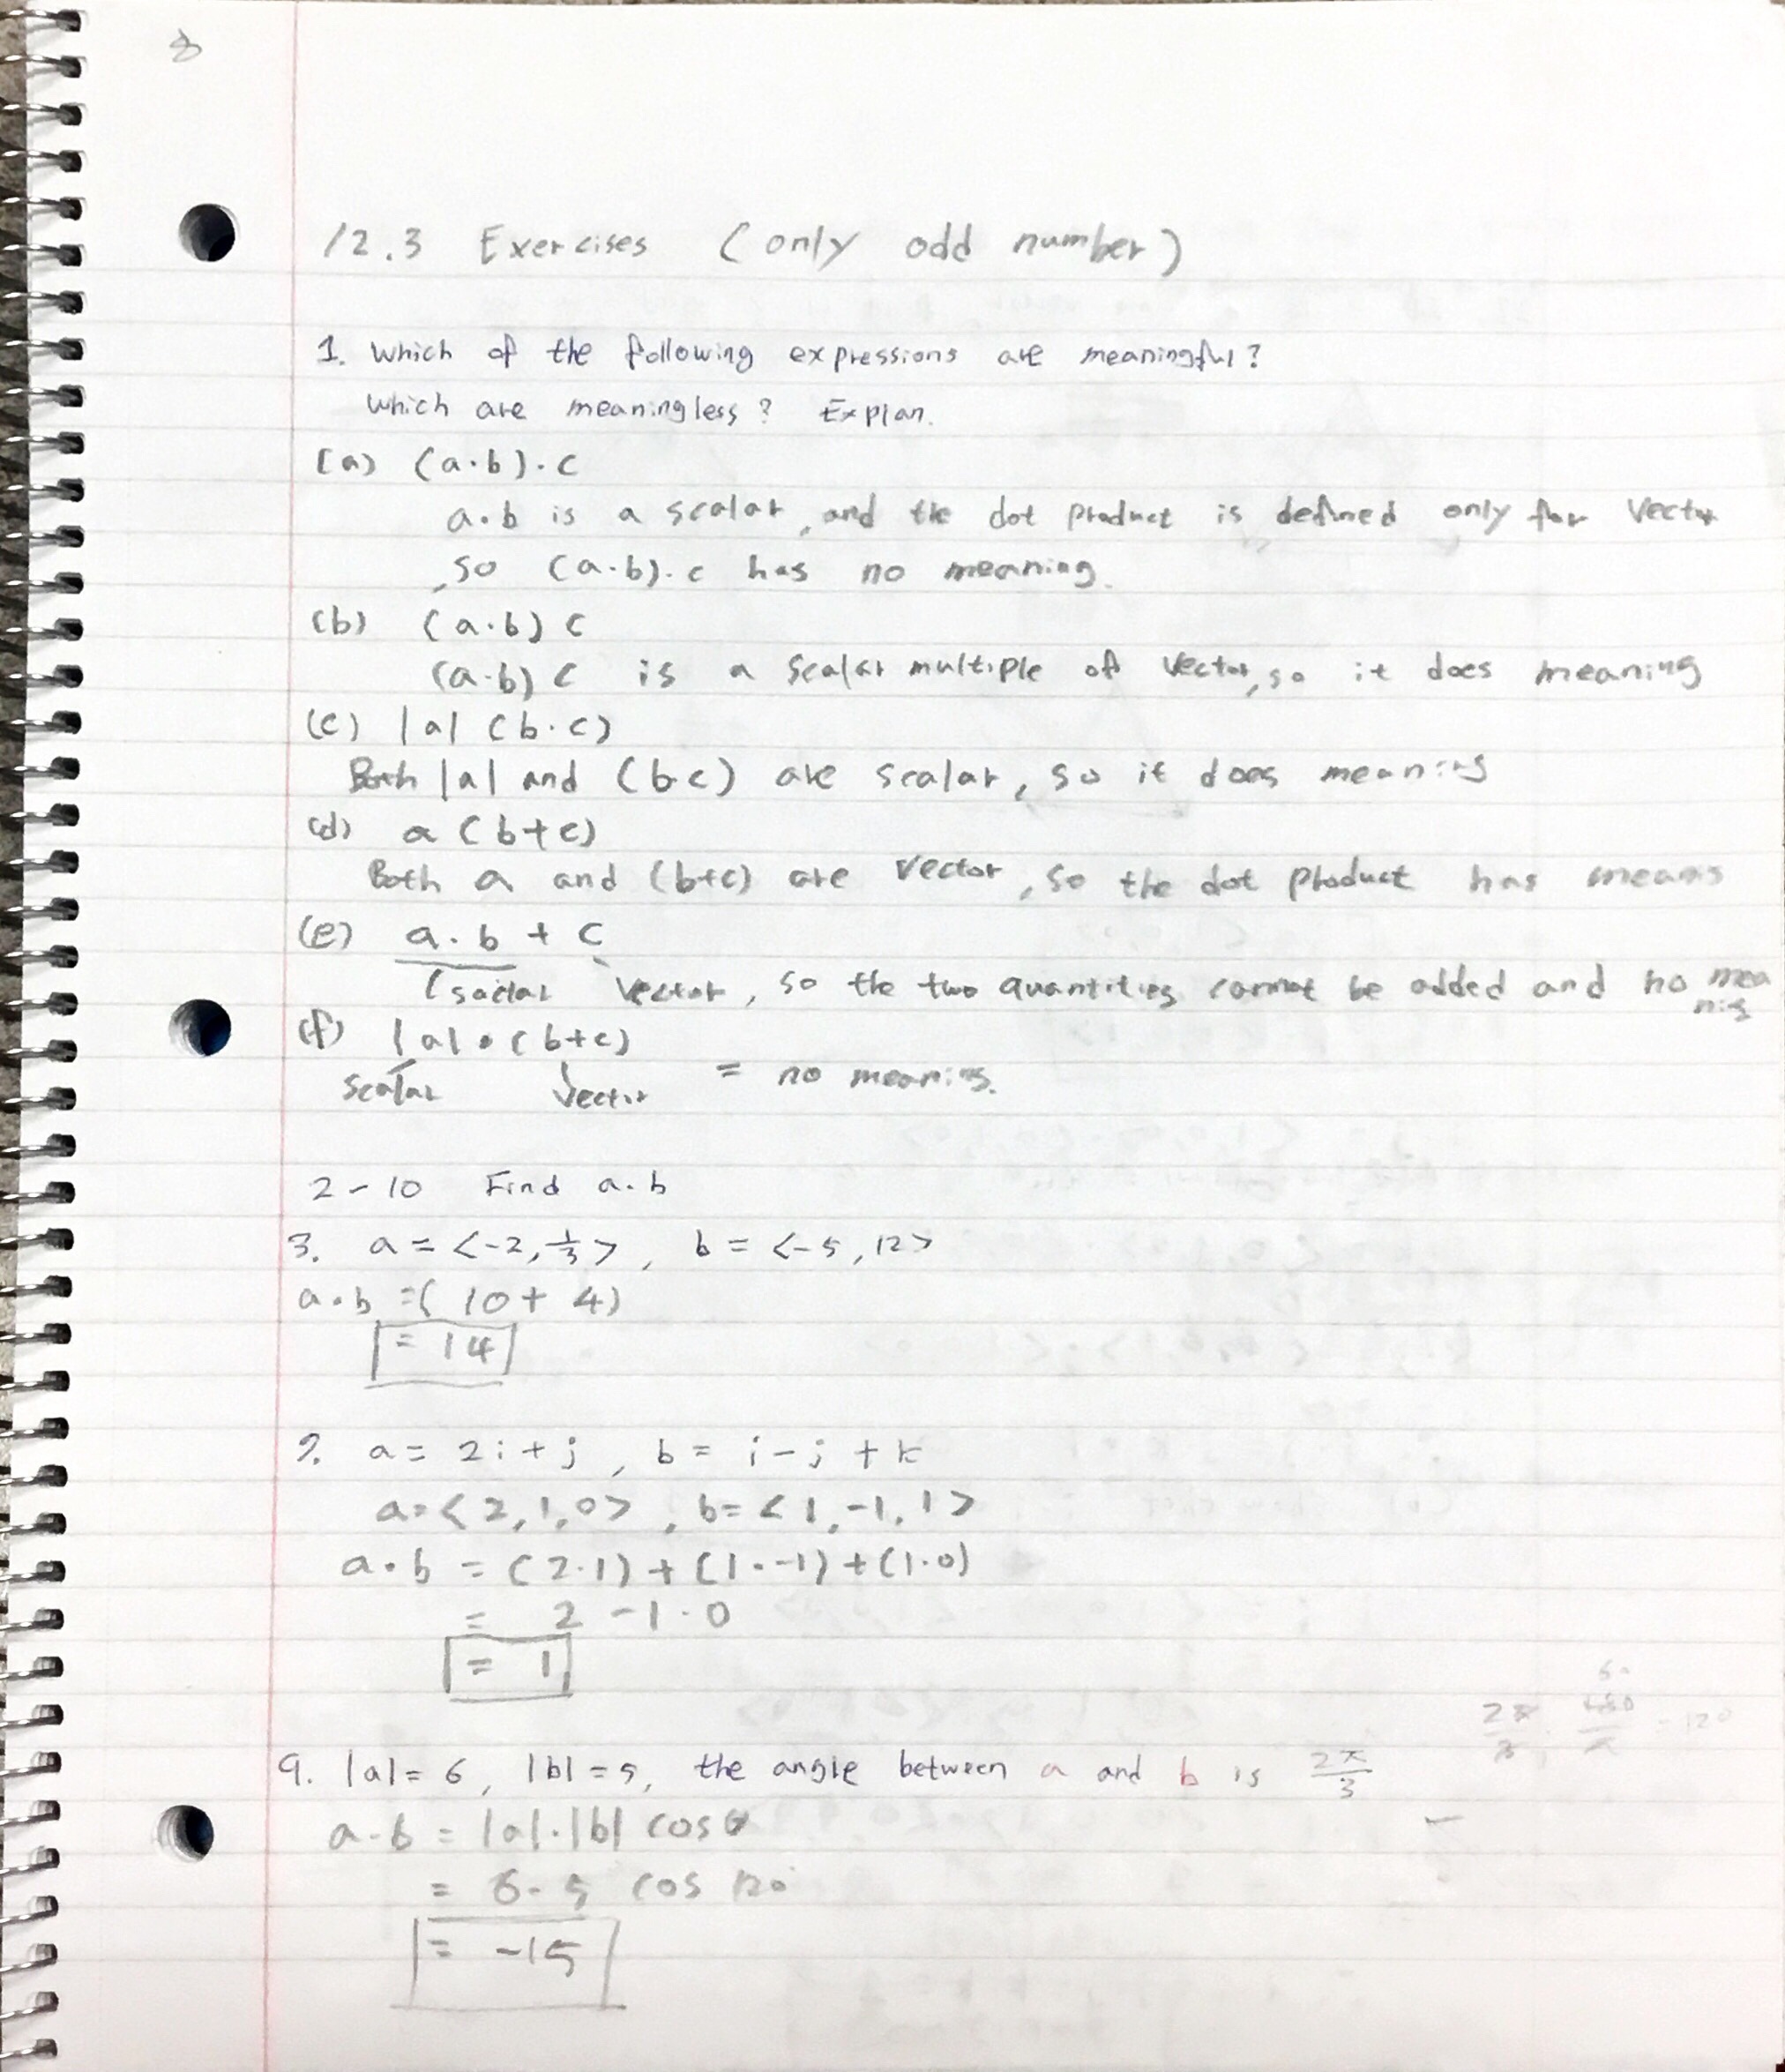 8
12.3 Exercises (only odd number)
1. Which of the following expressions are meaningful?
Which are meaningless? Explan.
(a) (a·b)·c
a·b is a scalar, and the dot product is defined only for Vector
, so (a·b)·c has no meaning.
(b) (a·b) c
(a·b) c is a scalar multiple of vector, so it does meaning
(c) |a| (b·c)
Both |a| and (b·c) are scalar, so it does meaning
(d) a (b+c)
Both a and (b+c) are vector, so the dot product has means
(e) a·b + c
vector, so the two quantities cannot be added and no mea
ning
(f) |a|·(b+c)
scalar vector = no meaning.
2-10 Find a·b
3. a = <-2, 1/3>, b = <-5, 12>
a·b =( 10 + 4)
= 14
7. a = 2i + j, b = i - j + k
a = <2, 1, 0>, b = <1, -1, 1>
a·b = (2·1) + (1·-1) + (1·0)
= 2 -1·0
= 1
2π/3 · 180/π = 120
60
9. |a| = 6, |b| = 5, the angle between a and b is 2π/3
a·b = |a|·|b| cosθ
= 6·5 cos 120°
= -15